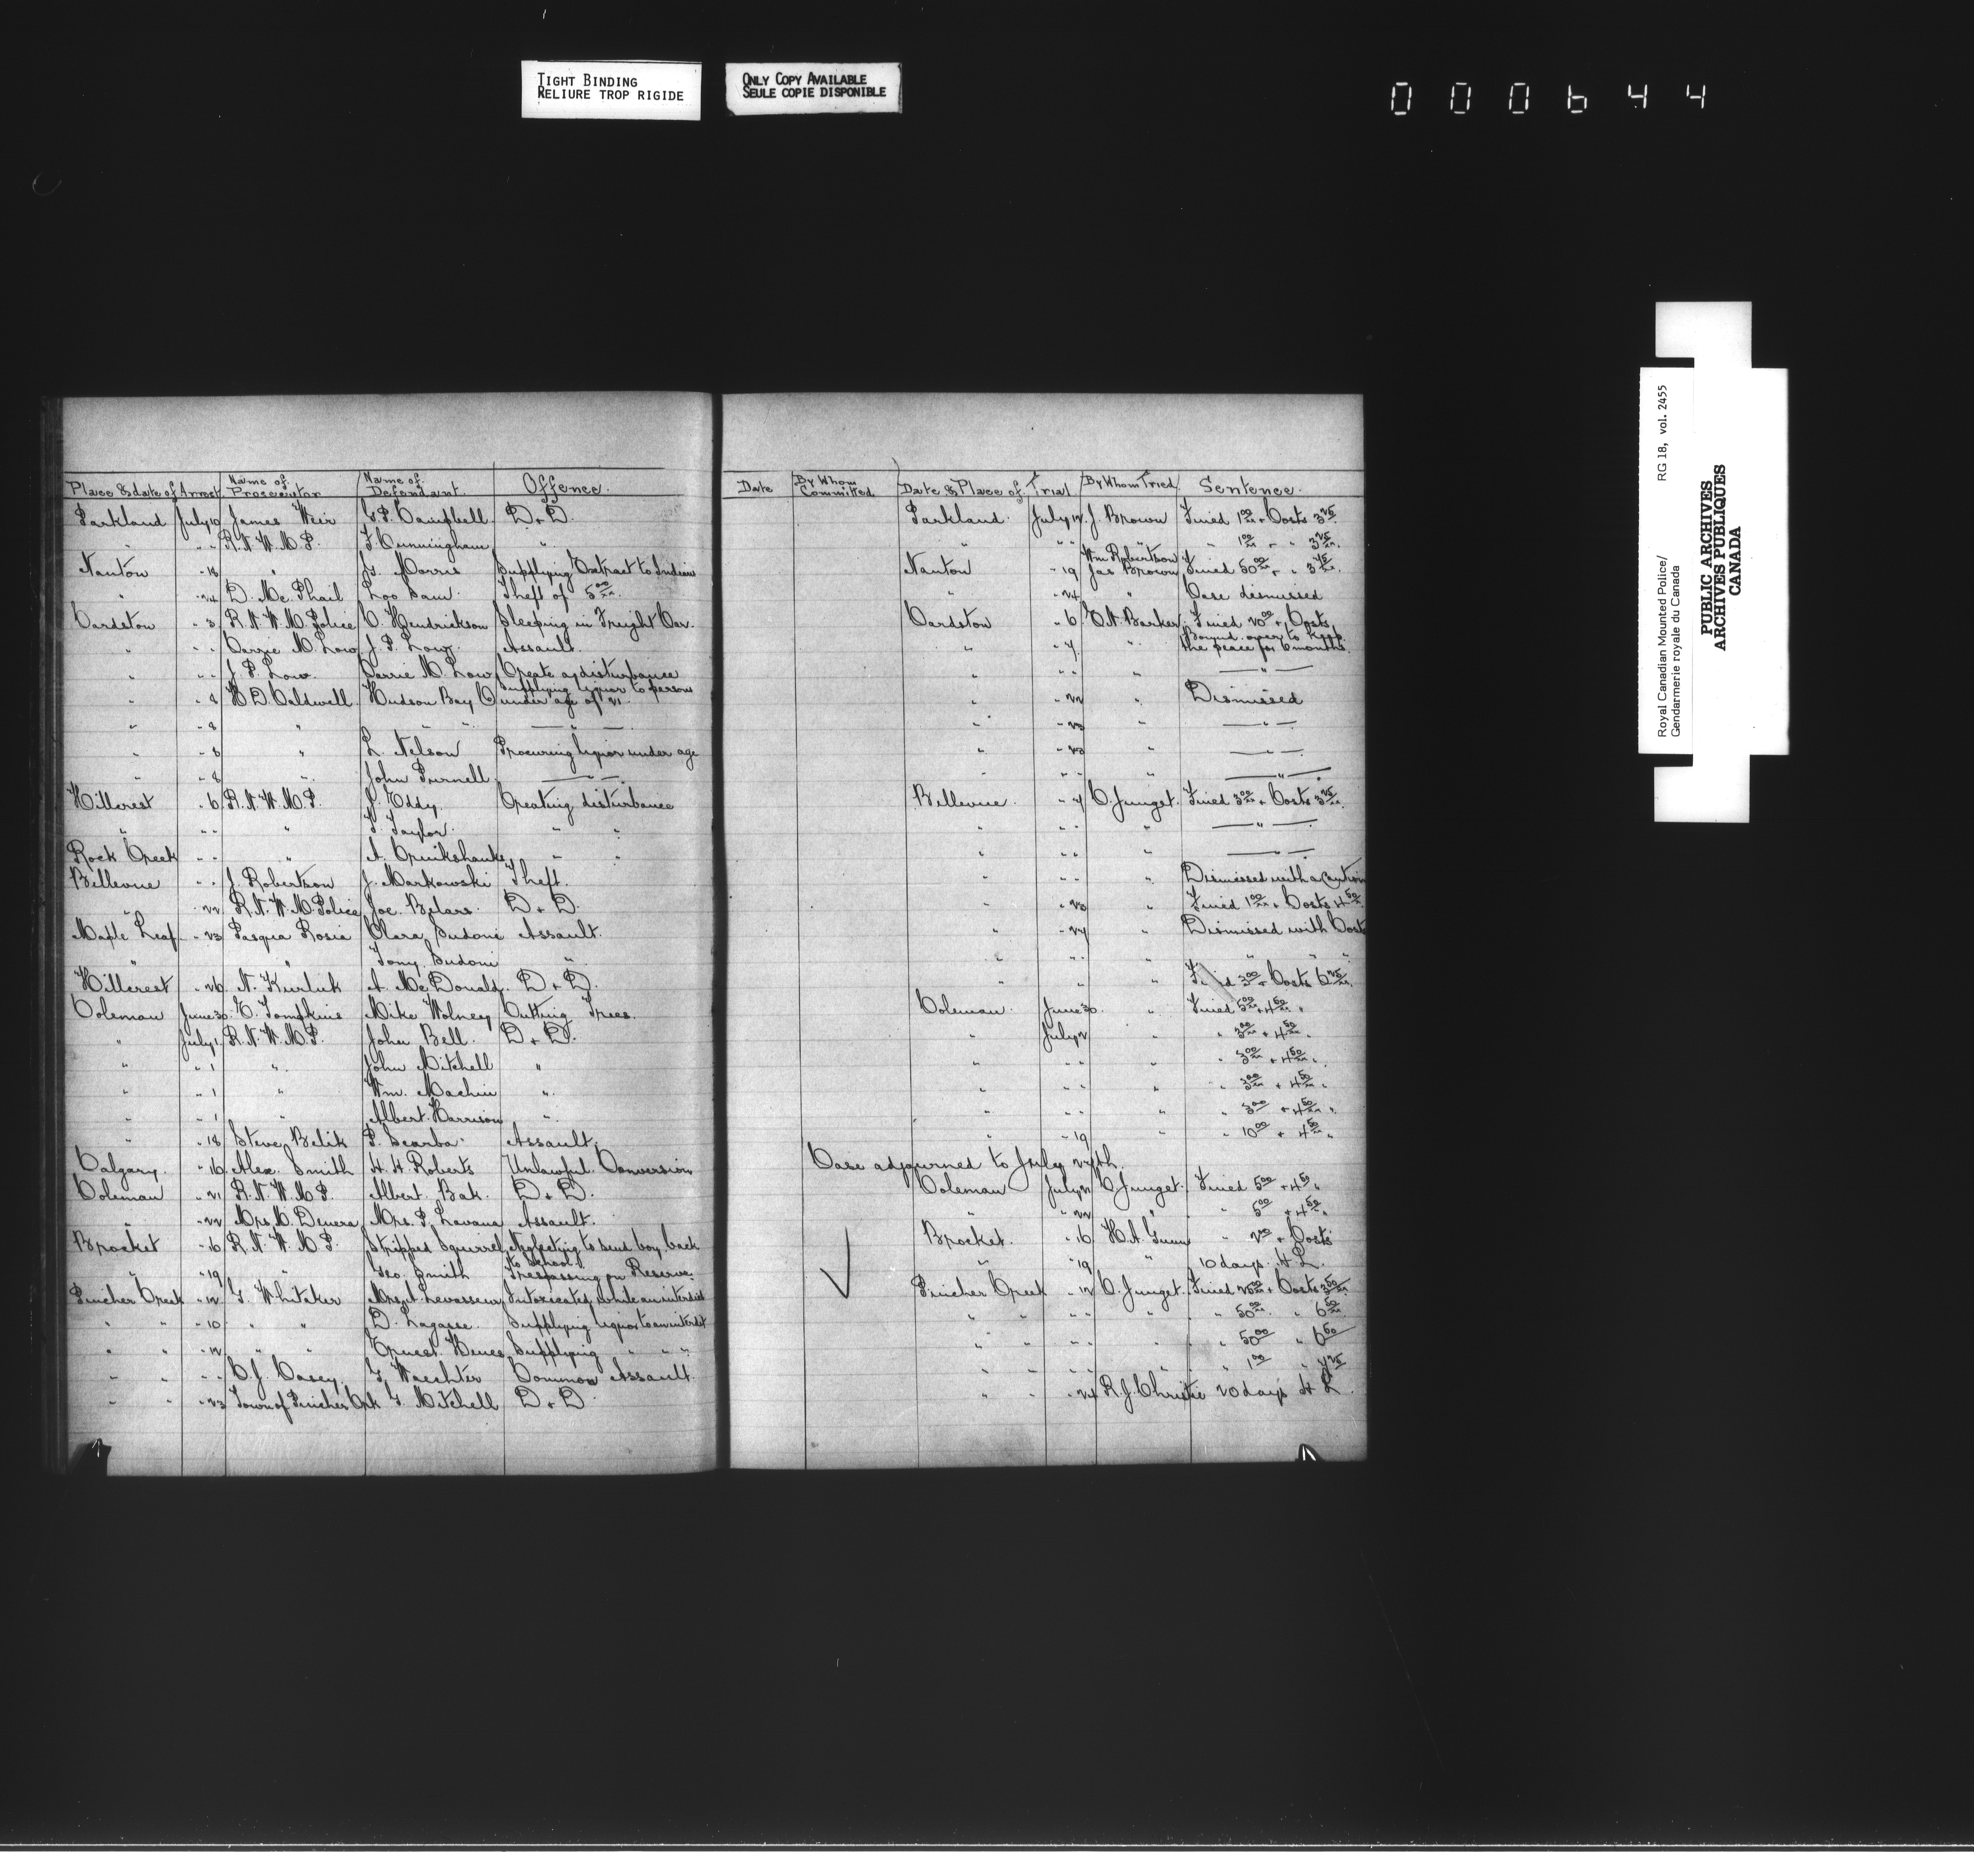 TIGHT BINDING
RELIURE TROP RIGIDE
ONLY COPY AVAILABLE
SEULE COPIE DISPONIBLE
000644
Royal Canadian Mounted Police/ RG 18, vol. 2455
Gendarmerie royale du Canada
PUBLIC ARCHIVES
ARCHIVES PUBLIQUES
CANADA
Place & date of Arrest Name of Prosecutor Name of Defendant Offence. Date By Whom Committed Date & Place of Trial By Whom Tried Sentence.
Parkland July 10 James Weir G.P. Campbell D + D. Parkland July 12 J. Brown Fined 1 00 + Costs 3 25
" " " R.N.W.M.P. F. Cunningham " " " " " " 1 00 + " 3 25
Nanton " 18 " G. Morris Supplying Extract to Indian Nanton " 19 Wm Robertson Jas Brown Fined 50 00 + " 3 75
" " 24 D. McPhail Loo Sam Theft of 5 00 " " 24 " Case dismissed
Cardston " 3 R.N.W.M. Police C. Hendrickson Sleeping in Freight Car. Cardston " 6 E.N. Barker Fined 20 00 + Costs
" " " Carrie M. Low J. P. Low Assault. " " 7 " Bound over to keep the peace for 6 months.
" " " J. P. Low Carrie M. Low Create a disturbance " " " " — " —
" " 8 H.D. Caldwell Hudson Bay Co Supplying liquor to persons under age of 21. " " 22 " Dismissed
" " 8 " " " — " — " " 23 " — " —
" " 8 " L. Nelson Procuring liquor under age " " 23 " — " —
" " 8 " John Purnell — " — " " " " — " —
Hillcrest " 6 R.N.W.M.P. J. Eddy Creating disturbance Bellevue " 7 C. Junget. Fined 3 00 + Costs 3 25
" " " " T. Taylor " " " " " " — " —
Rock Creek " " " A. Cruikshanks " " " " " " — " —
Bellevue " " J. Robertson J. Markowski Theft. " " " " Dismissed with a Caution
" " 22 R.N.W.M. Police Joe. D + D. " " 23 " Fined 1 00 + Costs 4 50
Maple Leaf " 23 Pasqua Rosia Clara Sudoni Assault. " " 24 " Dismissed with Costs
" " Tony Sudoni " " " " " " " "
Hillcrest " 26 N. A. McDonald D + D. " " " 3 00 + Costs 6 25
Coleman June 30 E. Tompkins Mike Wolney Cutting Trees. Coleman June 30 " Fined 5 00 + 4 50 "
" July 1 R.N.W.M.P. John Bell D + D. " July 2 " " 3 00 + 4 50 "
" " 1 " John Mitchell " " " " " " 3 00 + 4 50 "
" " 1 " Wm. Machin " " " " " " 3 00 + 4 50 "
" " 1 " Albert Harrison " " " " " " 3 00 + 4 50 "
" " 18 Steve Belik P. Scarba Assault. " " 19 " " 10 00 + 4 50 "
Calgary " 16 Alex. Smith H. H. Roberts Unlawful Conversion Case adjourned to July 27th.
Coleman " 21 R.N.W.M.P. Albert Bak. D + D. Coleman July 21 C. Junget. Fined 5 00 + 4 50 "
" " 22 Mrs. M. Mrs. P. Lavana Assault. " " 22 " " 5 00 + 4 50 "
Brocket " 16 R.N.W.M.P. Stripped Squirrel Neglecting to send boy back to School Brocket. " 16 H.A. Gunn " 2 00 + Costs
" " 19 " Geo. Smith Trespassing on Reserve. " " 19 " 10 days H.L.
Pincher Creek " 12 G. Whitaker Mrs. A. Levasseur Intoxicated while an interdict Pincher Creek " 12 C. Junget. Fined 25 00 + Costs 3 50
" " " 10 " " D. Lagasse Supplying liquor to an interdict " " " " " " 50 00 " 6 50
" " " 12 " " Ernest Supplying " " " " " " " " " 50 00 " 6 50
" " " " C.J. Casey G. Waechter Common Assault. " " " " " " 1 00 "
" " " 23 Town of Pincher Crk G. Mitchell D + D " " " 24 R.J. Christie 20 days H L.